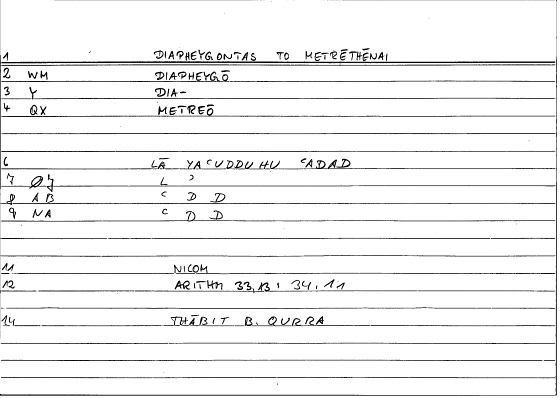 1 DIAPHEYGONTAS TO METRĒTHĒNAI
2 WM DIAPHEYGŌ
3 Y DIA-
4 QX METREŌ
6 LĀ YAʿUDDUHU ʿADAD
7 ØJ L ʾ
8 AB ʿ D D
9 NA ʿ D D
11 NICOM
12 ARITHM 33,13 ; 34,11
14 THĀBIT B. QURRA